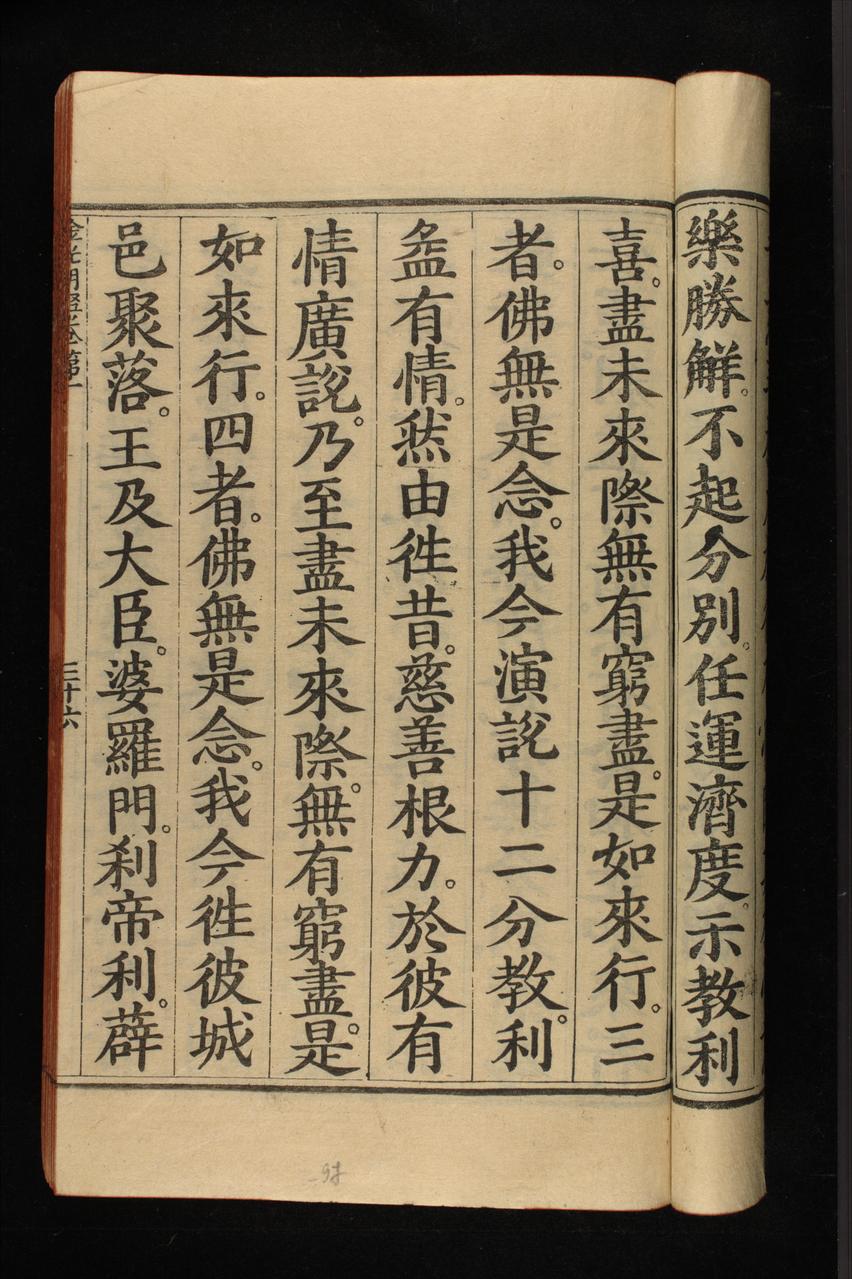 樂勝解。不起分別。任運濟度。示教利
喜。盡未來際無有窮盡。是如來行。三
者。佛無是念。我今演說十二分教利。
益有情。然由徃昔。慈善根力。於彼有
情廣說。乃至盡未來際。無有窮盡。是
如來行。四者。佛無是念。我今徃彼城
邑聚落。王及大臣。婆羅門。剎帝利。薜
金光明經卷第一
三十六